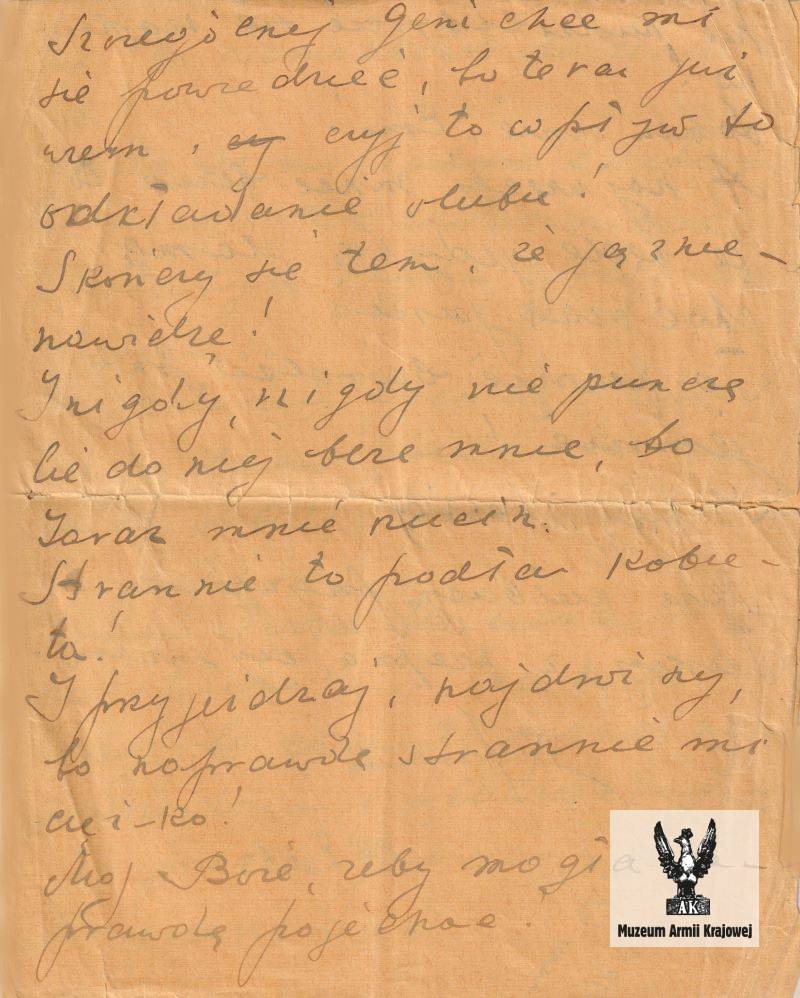 Szczególniej Geni chce mi
się powiedzieć, bo teraz już
wiem, czyj to
odkładanie ślubu!
Skończy się tem, że ją znie-
nawidzę!
I nigdy, nigdy nie puszczę
Cię do niej beze mnie, bo
zaraz mnie rzucisz.
Strasznie to podła kobie-
ta!
I przyjeżdżaj, najdroższy,
bo naprawdę strasznie mi
cięż-ko!
Mój Boże, żeby mogła na-
prawdę pojechać.
AK
Muzeum Armii Krajowej